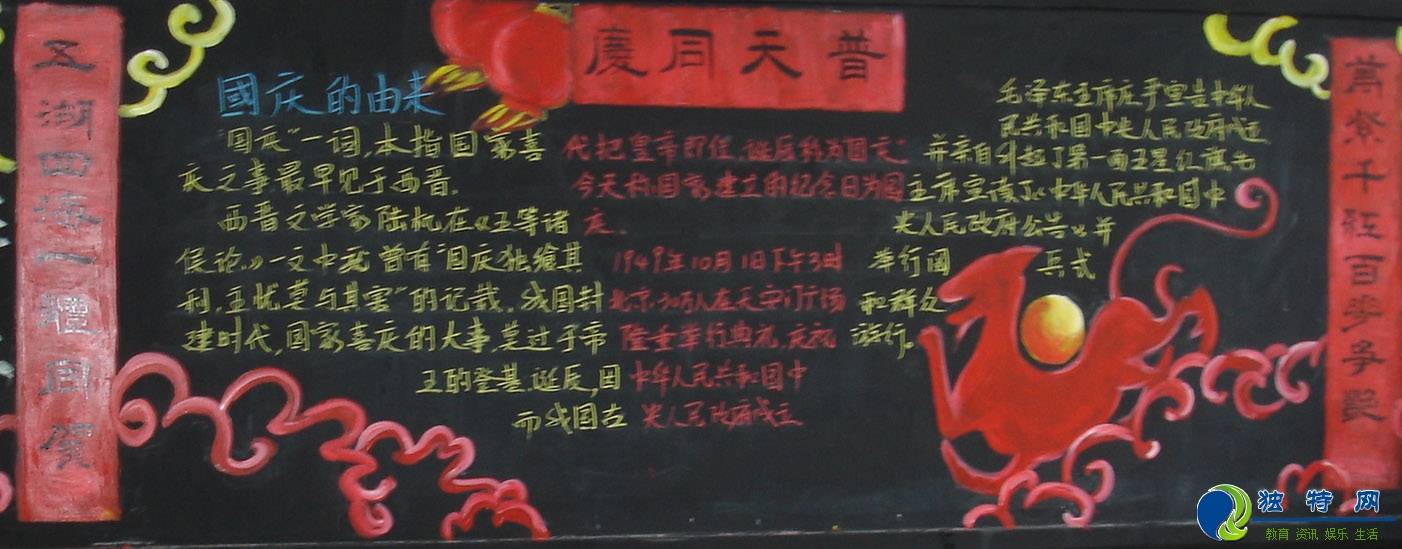 普天同慶
萬紫千红百争艷
五湖四海一同賀
國庆的由来
"国庆"一词,本指国家喜
庆之事.最早见于西晋.
西晋文学家陆机在《五等诸
侯论.》一文中就曾有"国庆独飨其
利,主忧莫与其害"的记载.我国封
建时代,国家喜庆的大事,莫过于帝
王的登基.诞辰,因
而我国古
代把皇帝即位.诞辰称为"国庆".
今天称国家建立的纪念日为国
庆.
1949年10月1日下午3时
北京30万人在天安门广场
隆重举行典礼.庆祝
中华人民共和国中
央人民政府成立
毛泽东主席庄严宣告中华人
民共和国中央人民政府成立
并亲自升起了第一面五星红旗.毛
主席宣读了《中华人民共和国中
央人民政府公告》并
举行阅兵式
和群众
游行。
独特网
教育 资讯 娱乐 生活